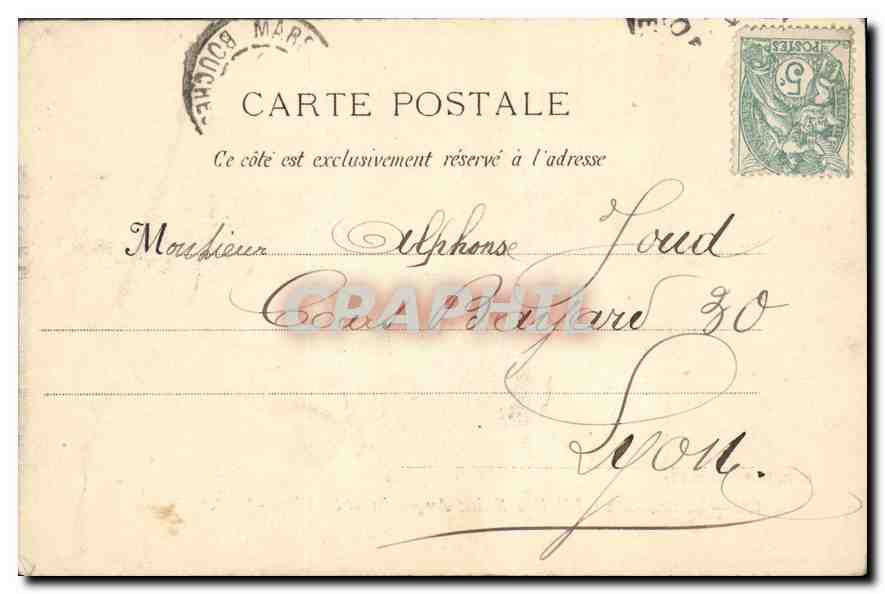 BOUCHE- MARS
POSTES
5c
CARTE POSTALE
Ce côté est exclusivement réservé à l'adresse
Monsieur Alphonse Joud
Bayard 30
Lyon.
CRAPHIL